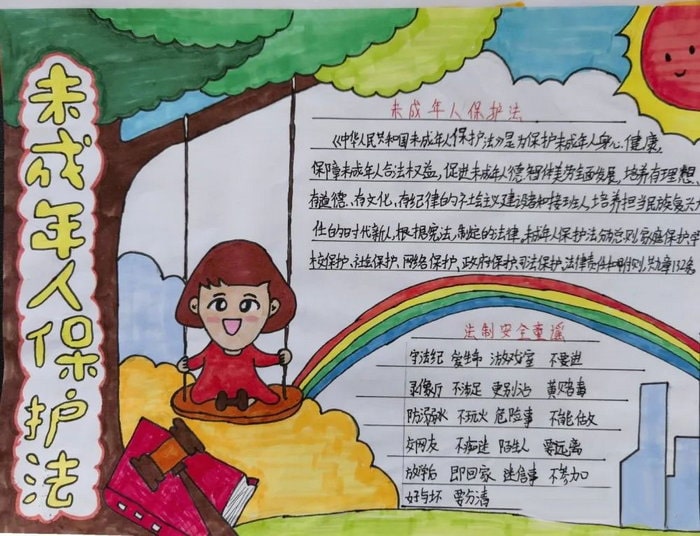 未成年人保护法
未成年人保护法
《中华人民共和国未成年人保护法》是为保护未成年人身心健康,
保障未成年人合法权益,促进未成年人德智体美劳全面发展,培养有理想、
有道德、有文化、有纪律的社会主义建设者和接班人,培养担当民族复兴大
任的时代新人,根据宪法,制定的法律,未成年人保护法分总则、家庭保护、学
校保护、社会保护、网络保护、政府保护、司法保护、法律责任和附则,共九章132条
法制安全童谣
守法纪 爱生命 游戏室 不要进
录像厅 不涉足 更别沾 黄赌毒
防溺水 不玩火 危险事 不能做
交网友 不痴迷 陌生人 要远离
放学后 即回家 迷信事 不参加
好与坏 要分清